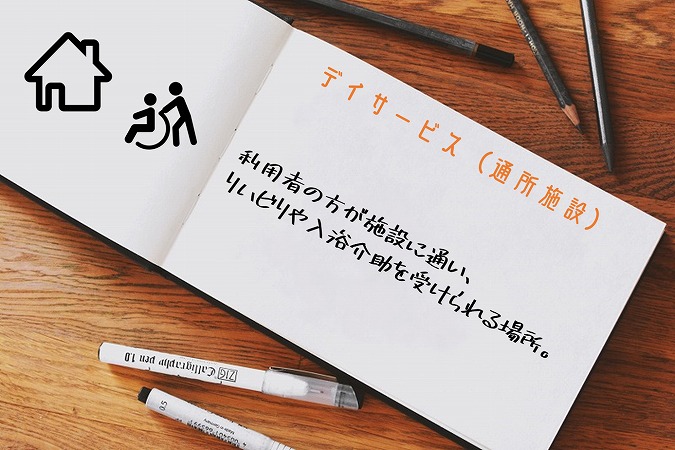 デイサービス（通所施設）
利用者の方が施設に通い、
リハビリや入浴介助を受けられる場所。
ZIG Calligraphy pen 1.0
0.5
Made in Germany